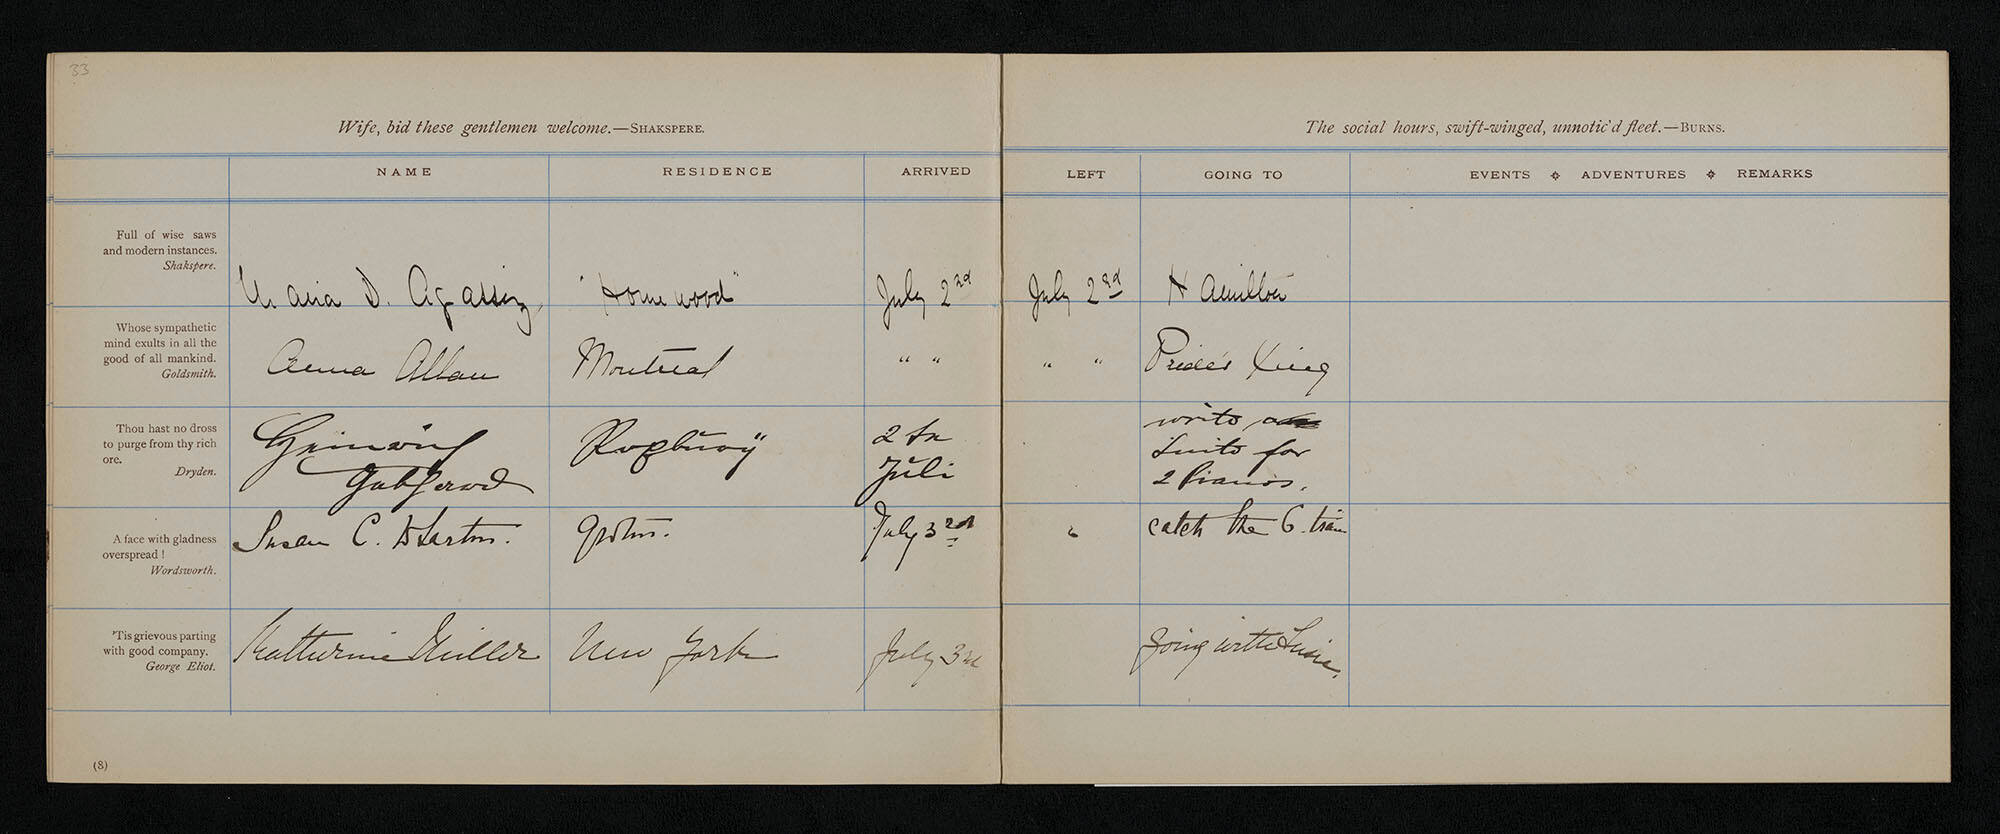 33
Wife, bid these gentlemen welcome.—SHAKSPERE.
The social hours, swift-winged, unnotic'd fleet.—BURNS.
NAME RESIDENCE ARRIVED LEFT GOING TO EVENTS ADVENTURES REMARKS
Full of wise saws
and modern instances.
Shakspere.
Maria D. Agassiz, "Homewood" July 2nd July 2nd Hamilton
Whose sympathetic
mind exults in all the
good of all mankind.
Goldsmith.
Anna Allan Montreal " " " " Pride's Xing
Thou hast no dross
to purge from thy rich
ore.
Dryden.
Heinrich
Gebhard
Roxbury
2 
Juli
write a
Suite for
2 Pianos.
A face with gladness
overspread !
Wordsworth.
Susan C. Groton. July 3rd catch the 6. train
'Tis grievous parting
with good company.
George Eliot.
Katherine Miller New York July 3rd going with Susie.
(8)